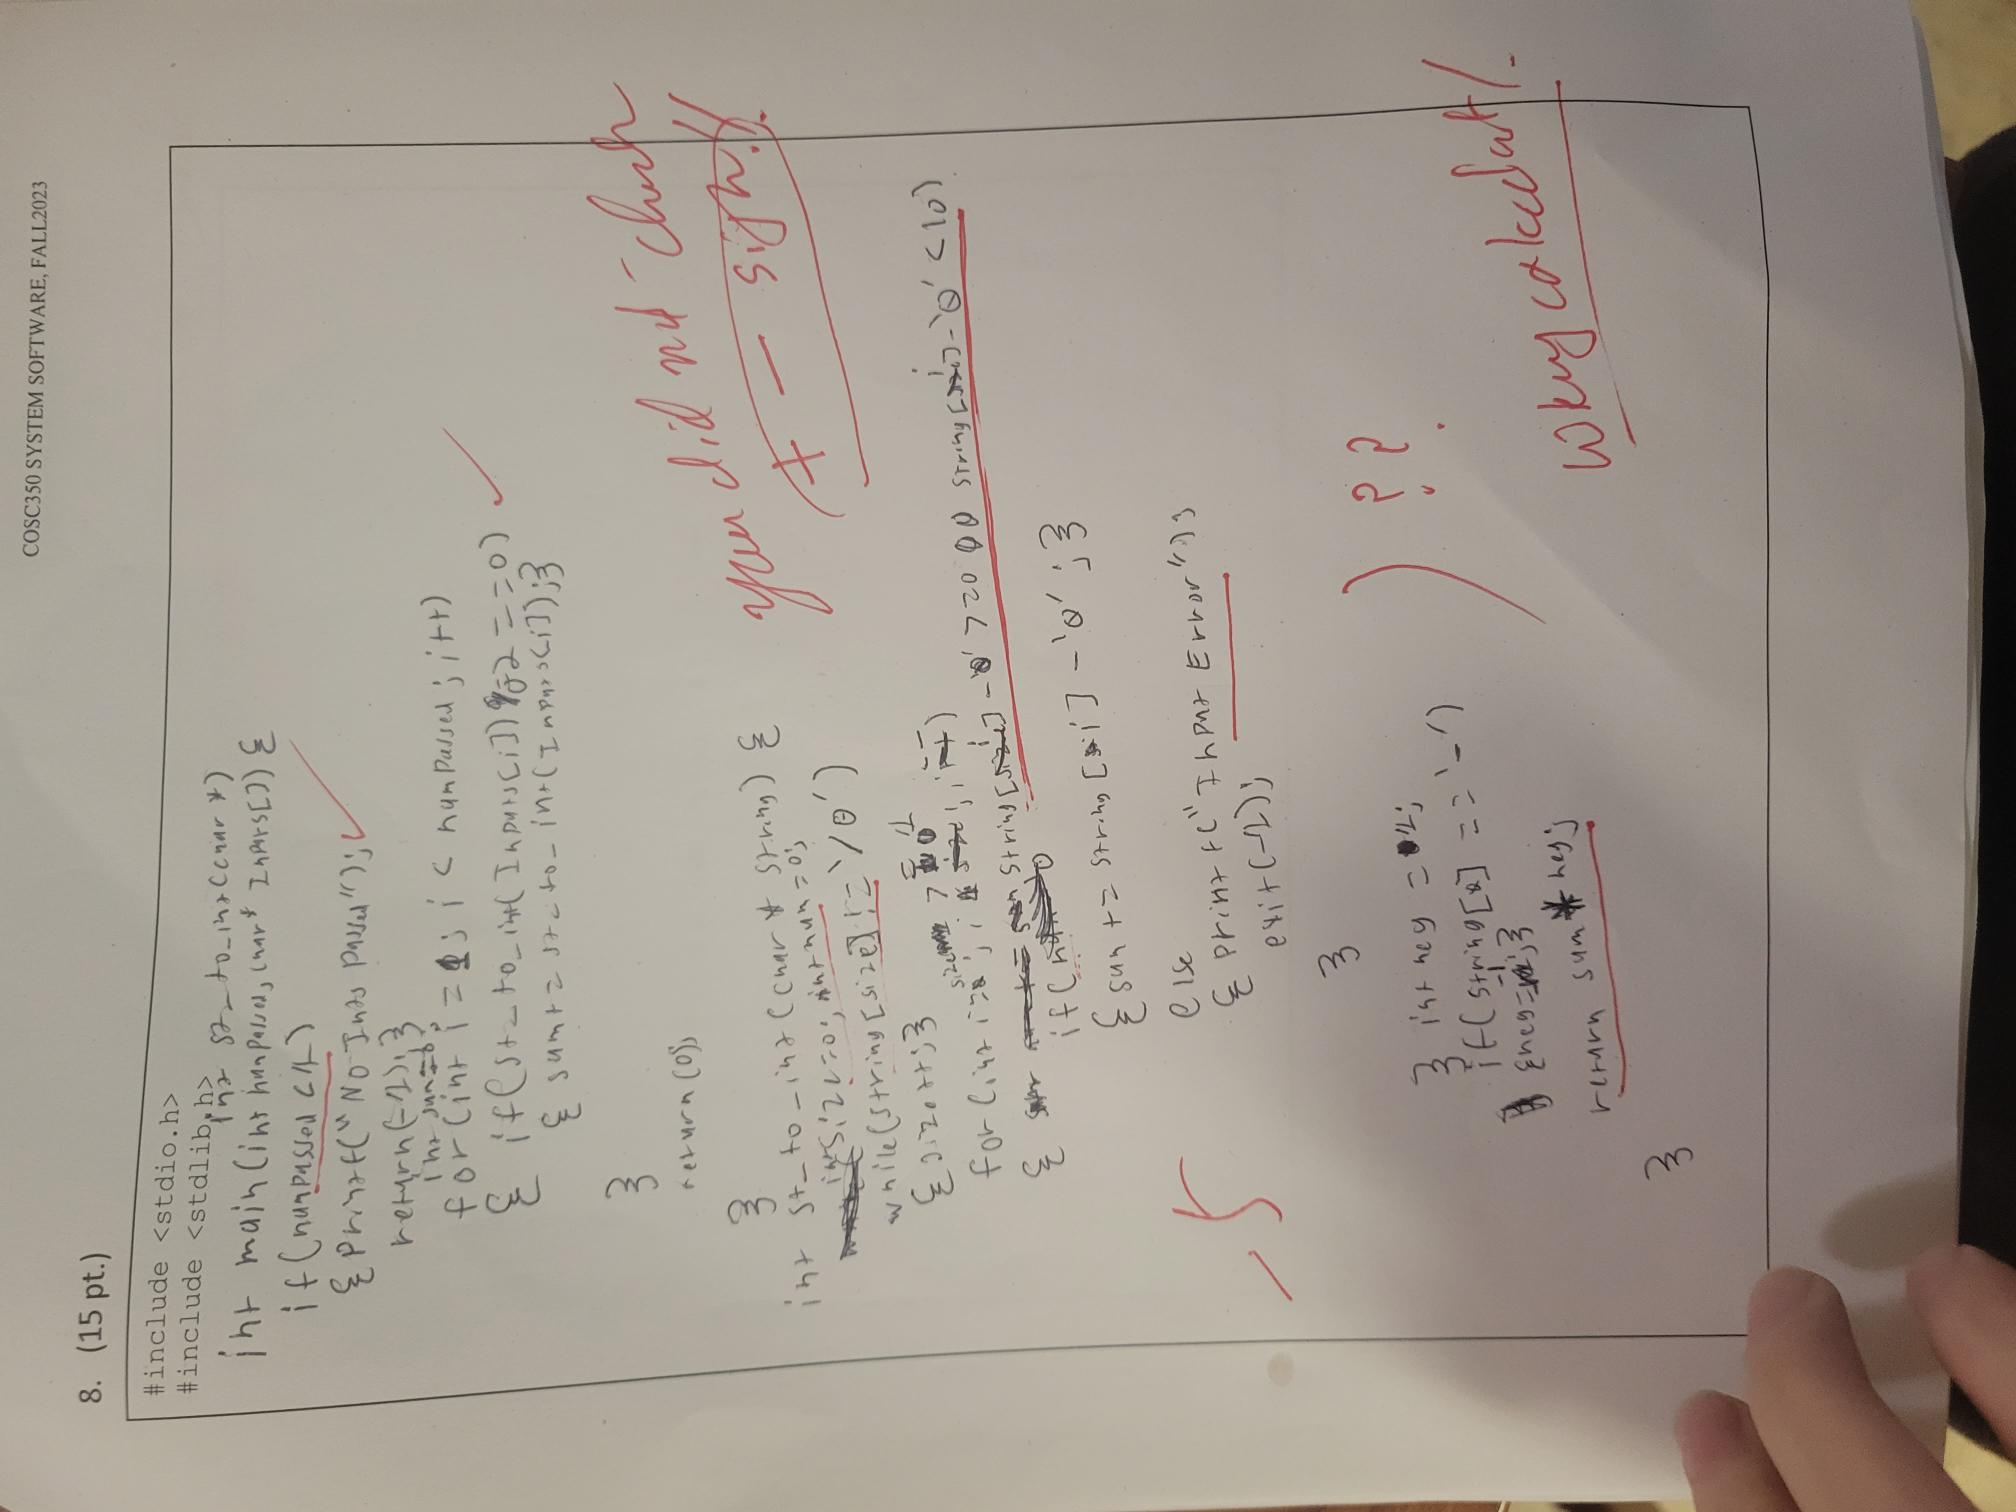 COSC350 SYSTEM SOFTWARE, FALL2023
8. (15 pt.)
#include <stdio.h>
#include <stdlib.h>
int st_to_int(char *)
int main(int numpassed, char* Inputs[]) {
if(numpassed < 1)
{ printf("No Ints passed");
return(-1);}
int sum=0;
for(int i = 1; i < numpassed; i++)
{ if(st_to_int(Inputs[i]) % 2 == 0)
{ sum += st_to_int(Inputs[i]);}
}
return(0);
}
you did not check
+ - sign!!
int st_to_int(char * string) {
int size=0; int num=0;
while(string[size] != '\0')
{size++;}
for(int i=size; i >= 1; i--)
{
if(string[i] - '0' >= 0 && string[i] - '0' < 10)
{sum += string[i] - '0';}
else
{ printf("Input Error");
exit(-1);
}
-5
} int neg = 1;
if(string[0] == '-')
{neg=-1;}
return sum * neg;
}
??